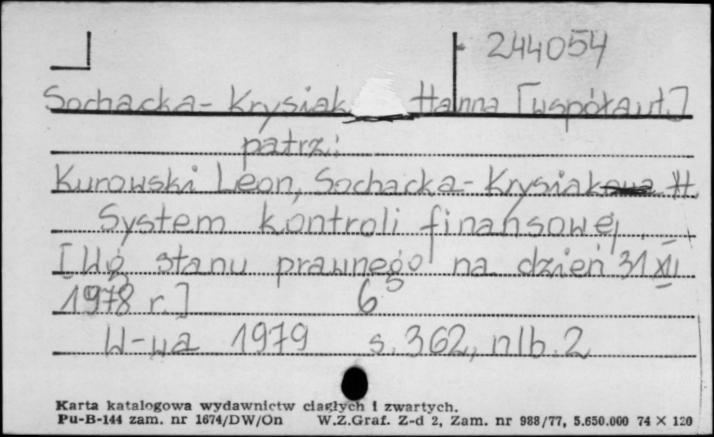 244054
Sochacka-Krysiak Hanna [współaut.]
patrz:
Kurowski Leon, Sochacka-Krysiak H.
System kontroli finansowej
[Wg stanu prawnego na dzień 31 XII
1978 r.] 6
W-wa 1979 s. 362, nlb. 2
Karta katalogowa wydawnictw ciągłych i zwartych.
Pu-B-144 zam. nr 1674/DW/On W.Z.Graf. Z-d 2, Zam. nr 988/77, 5.650.000 74 × 120